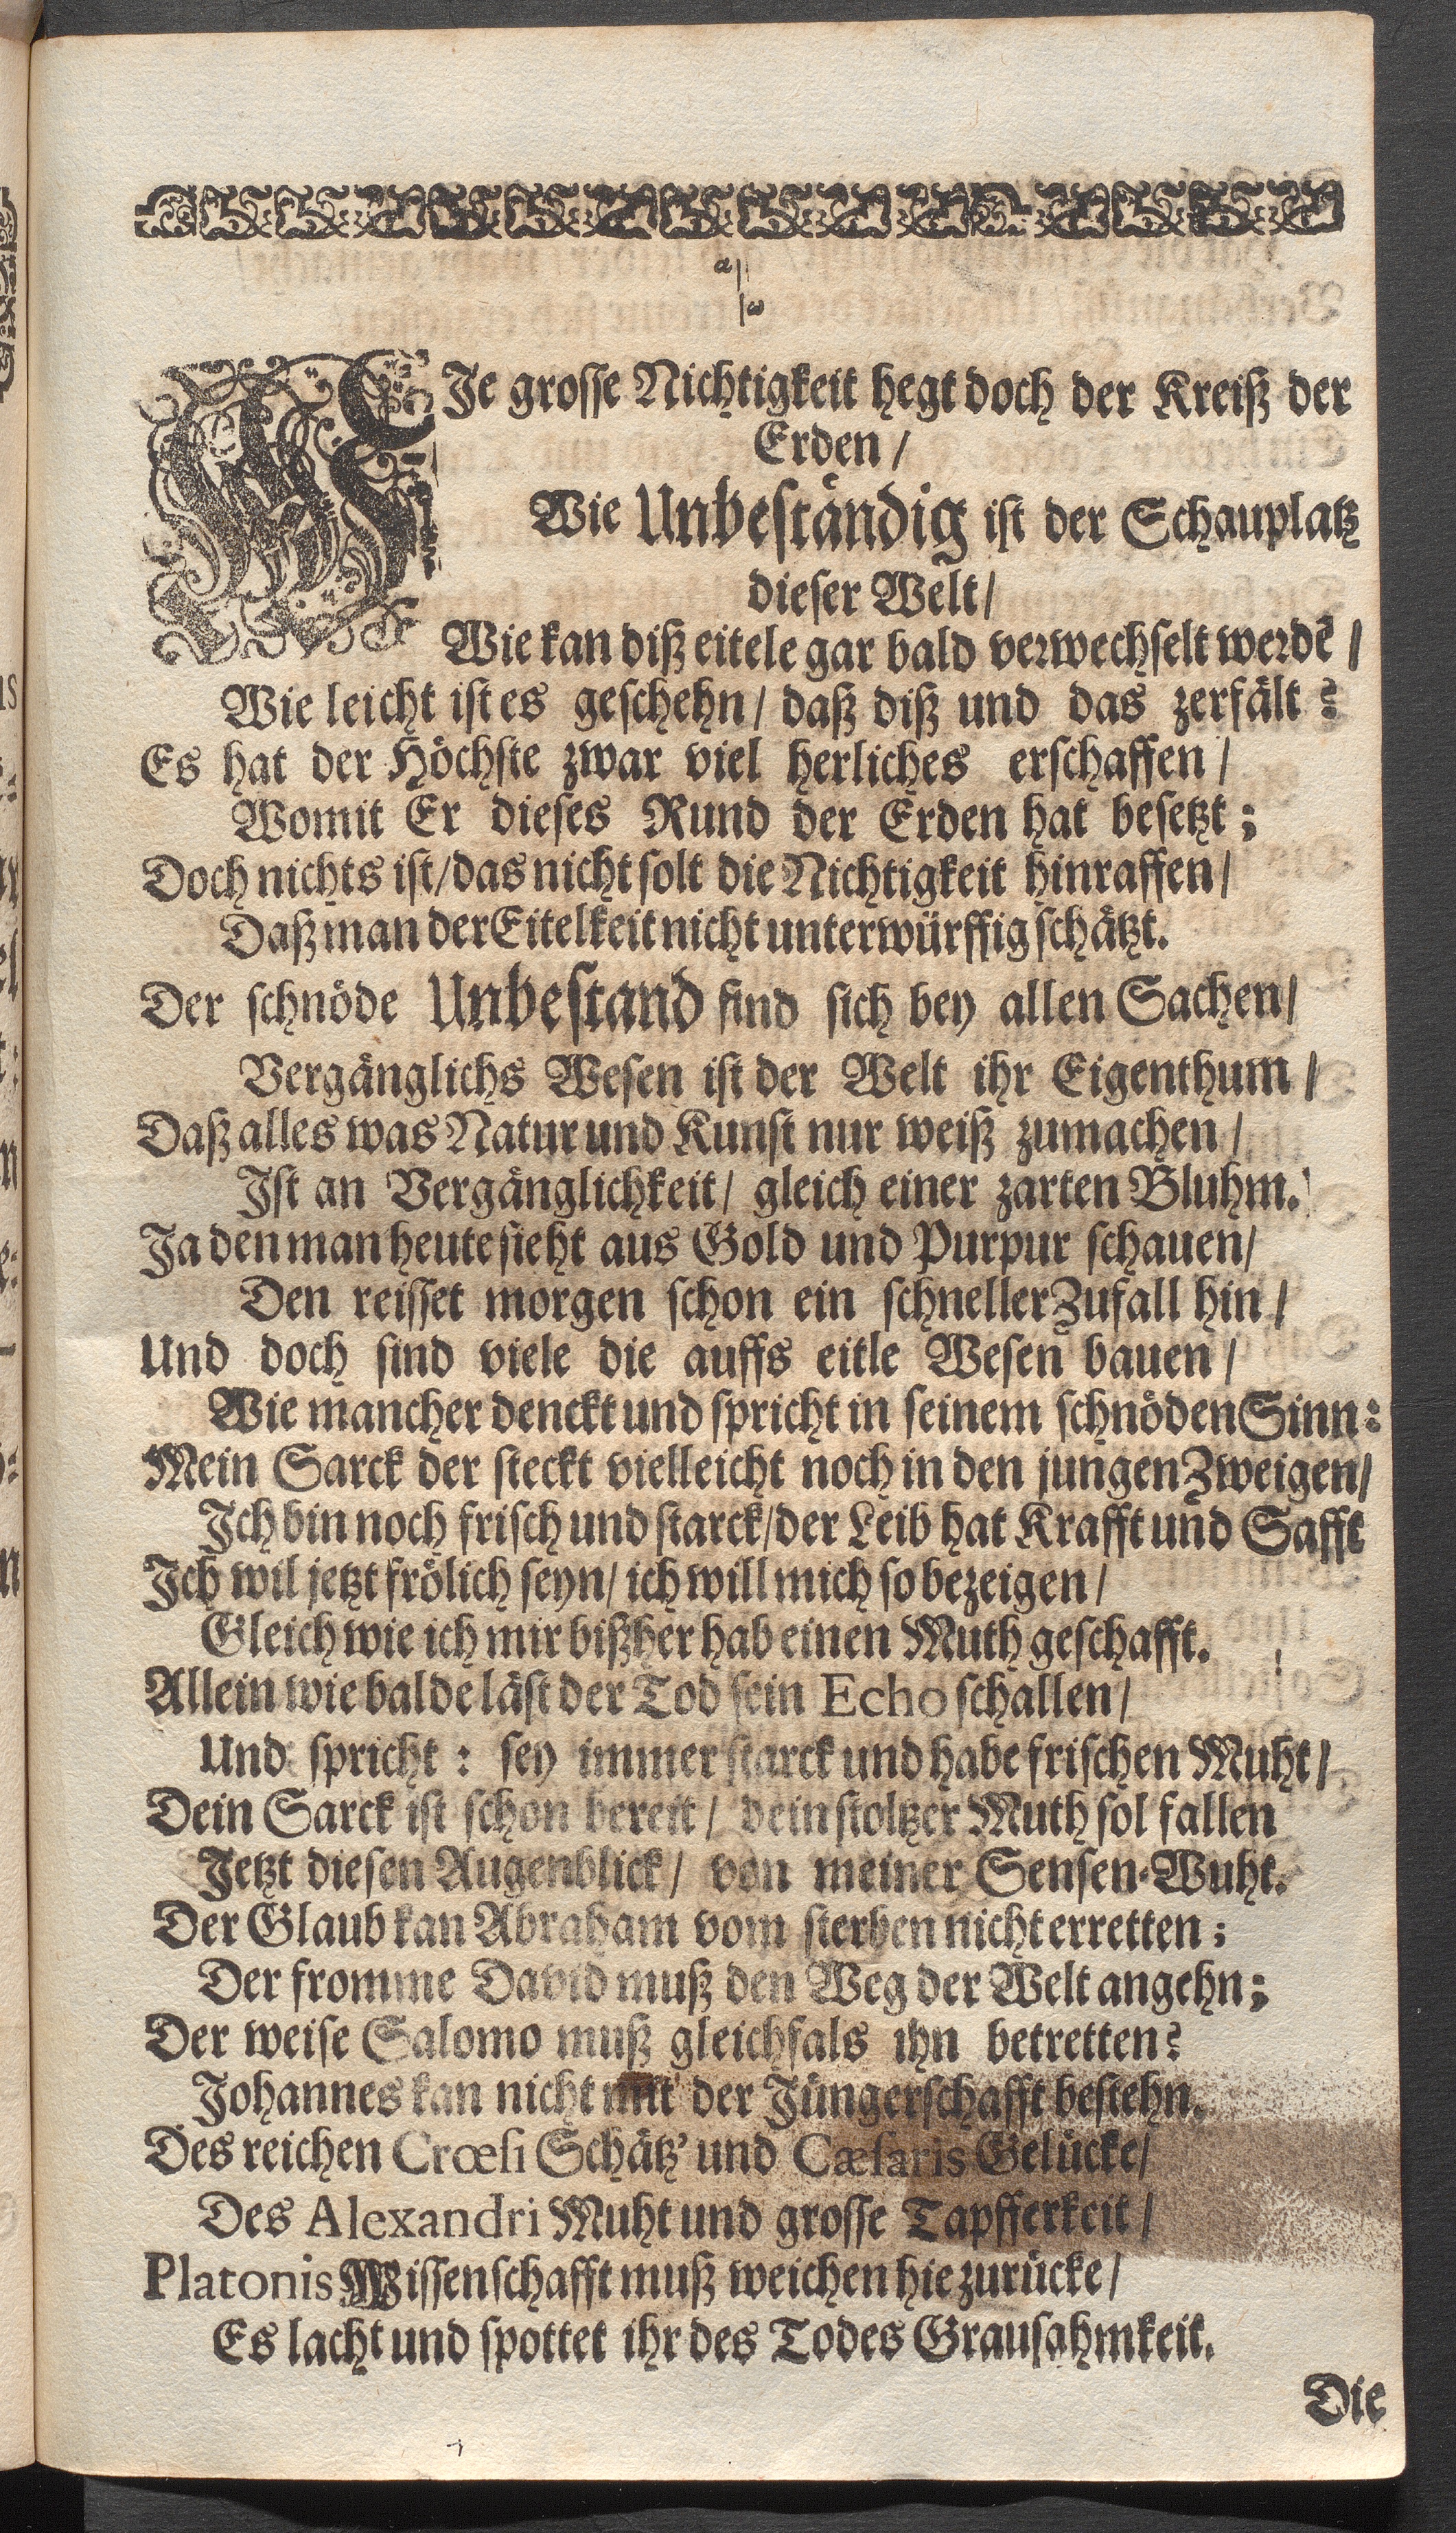 α|
|ω
WIe grosse Nichtigkeit hegt doch der Kreiß der
Erden /
Wie Unbeständig ist der Schauplatz
dieser Welt /
Wie kan diß eitele gar bald verwechselt werdē /
Wie leicht ist es geschehn / daß diß und das zerfält?
Es hat der Höchste zwar viel herliches erschaffen /
Womit Er dieses Rund der Erden hat besetzt;
Doch nichts ist / das nicht solt die Nichtigkeit hinraffen /
Daß man der Eitelkeit nicht unterwürffig schätzt.
Der schnöde Unbestand find sich bey allen Sachen /
Vergänglichs Wesen ist der Welt ihr Eigenthum /
Daß alles was Natur und Kunst nur weiß zumachen /
Ist an Vergänglichkeit / gleich einer zarten Bluhm.
Ja den man heute sieht aus Gold und Purpur schauen /
Den reisset morgen schon ein schneller Zufall hin /
Und doch sind viele die auffs eitle Wesen bauen /
Wie mancher denckt und spricht in seinem schnöden Sinn:
Mein Sarck der steckt vielleicht noch in den jungen Zweigen /
Ich bin noch frisch und starck / der Leib hat Krafft und Safft
Ich wil jetzt frölich seyn / ich will mich so bezeigen /
Gleich wie ich mir bißher hab einen Muth geschafft.
Allein wie balde läst der Tod sein Echo schallen /
Und spricht: sey immer starck und habe frischen Muht /
Dein Sarck ist schon bereit / dein stoltzer Muth sol fallen
Jetzt diesen Augenblick / von meiner Sensen-Wuht.
Der Glaub kan Abraham vom sterben nicht erretten;
Der fromme David muß den Weg der Welt angehn;
Der weise Salomo muß gleichfals ihn betretten?
Johannes kan nicht mit der Jüngerschafft bestehn.
Des reichen Crœsi Schätz' und Cæsaris Gelücke /
Des Alexandri Muht und grosse Tapfferkeit /
Platonis Wissenschafft muß weichen hie zurücke /
Es lacht und spottet ihr des Todes Grausahmkeit.
Die